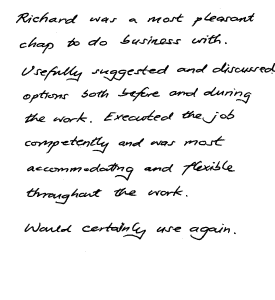 Richard was a most pleasant
chap to do business with.
Usefully suggested and discussed
options both before and during
the work. Executed the job
competently and was most
accommodating and flexible
throughout the work.
Would certainly use again.